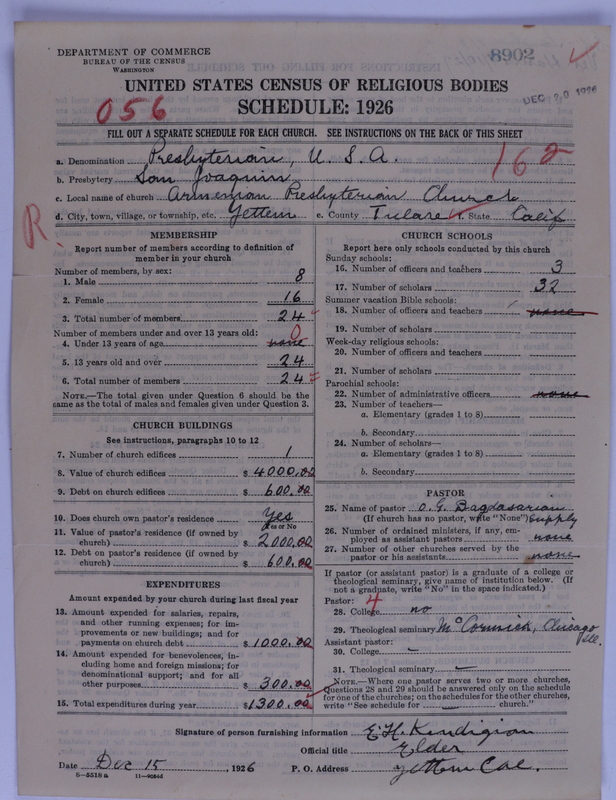 DEPARTMENT OF COMMERCE
BUREAU OF THE CENSUS
WASHINGTON
8902
UNITED STATES CENSUS OF RELIGIOUS BODIES
DEC 20 1926
056
SCHEDULE: 1926
FILL OUT A SEPARATE SCHEDULE FOR EACH CHURCH. SEE INSTRUCTIONS ON THE BACK OF THIS SHEET
a. Denomination Presbyterian, U. S. A.
162
b. Presbytery San Joaquin
c. Local name of church Armenian Presbyterian Church
d. City, town, village, or township, etc. Yettem e. County Tulare State Calif
R.
MEMBERSHIP
Report number of members according to definition of
member in your church
Number of members, by sex:
1. Male 8
2. Female 16
3. Total number of members 24
Number of members under and over 13 years old: 0
4. Under 13 years of age none
5. 13 years old and over 24
6. Total number of members 24
NOTE.—The total given under Question 6 should be the
same as the total of males and females given under Question 3.
CHURCH BUILDINGS
See instructions, paragraphs 10 to 12
7. Number of church edifices 1
8. Value of church edifices $4000.00
9. Debt on church edifices $600.00
10. Does church own pastor's residence Yes
Yes or No
11. Value of pastor's residence (if owned by
church) $2000.00
12. Debt on pastor's residence (if owned by
church) $600.00
EXPENDITURES
Amount expended by your church during last fiscal year
13. Amount expended for salaries, repairs,
and other running expenses; for im-
provements or new buildings; and for
payments on church debt $1000.00
14. Amount expended for benevolences, in-
cluding home and foreign missions; for
denominational support; and for all
other purposes $300.00
15. Total expenditures during year $1300.00
CHURCH SCHOOLS
Report here only schools conducted by this church
Sunday schools:
16. Number of officers and teachers 3
17. Number of scholars 32
Summer vacation Bible schools:
18. Number of officers and teachers none
19. Number of scholars
Week-day religious schools:
20. Number of officers and teachers
21. Number of scholars
Parochial schools:
22. Number of administrative officers none
23. Number of teachers—
a. Elementary (grades 1 to 8)
b. Secondary
24. Number of scholars—
a. Elementary (grades 1 to 8)
b. Secondary
PASTOR
25. Name of pastor O. G. Bagdasarian
(If church has no pastor, write "None") Supply
26. Number of ordained ministers, if any, em-
ployed as assistant pastors none
27. Number of other churches served by the
pastor or his assistants none
If pastor (or assistant pastor) is a graduate of a college or
theological seminary, give name of institution below. (If
not a graduate, write "No" in the space indicated.)
Pastor: 4
28. College no
29. Theological seminary McCormick, Chicago
Ill.
Assistant pastor:
30. College –
31. Theological seminary –
NOTE.—Where one pastor serves two or more churches,
Questions 28 and 29 should be answered only on the schedule
for one of the churches; on the schedules for the other churches,
write "See schedule for church."
Signature of person furnishing information E. H. Kindigian
Official title Elder
Date Dec 15, 1926 P. O. Address Yettem Cal.
8—5518a 11—9056d